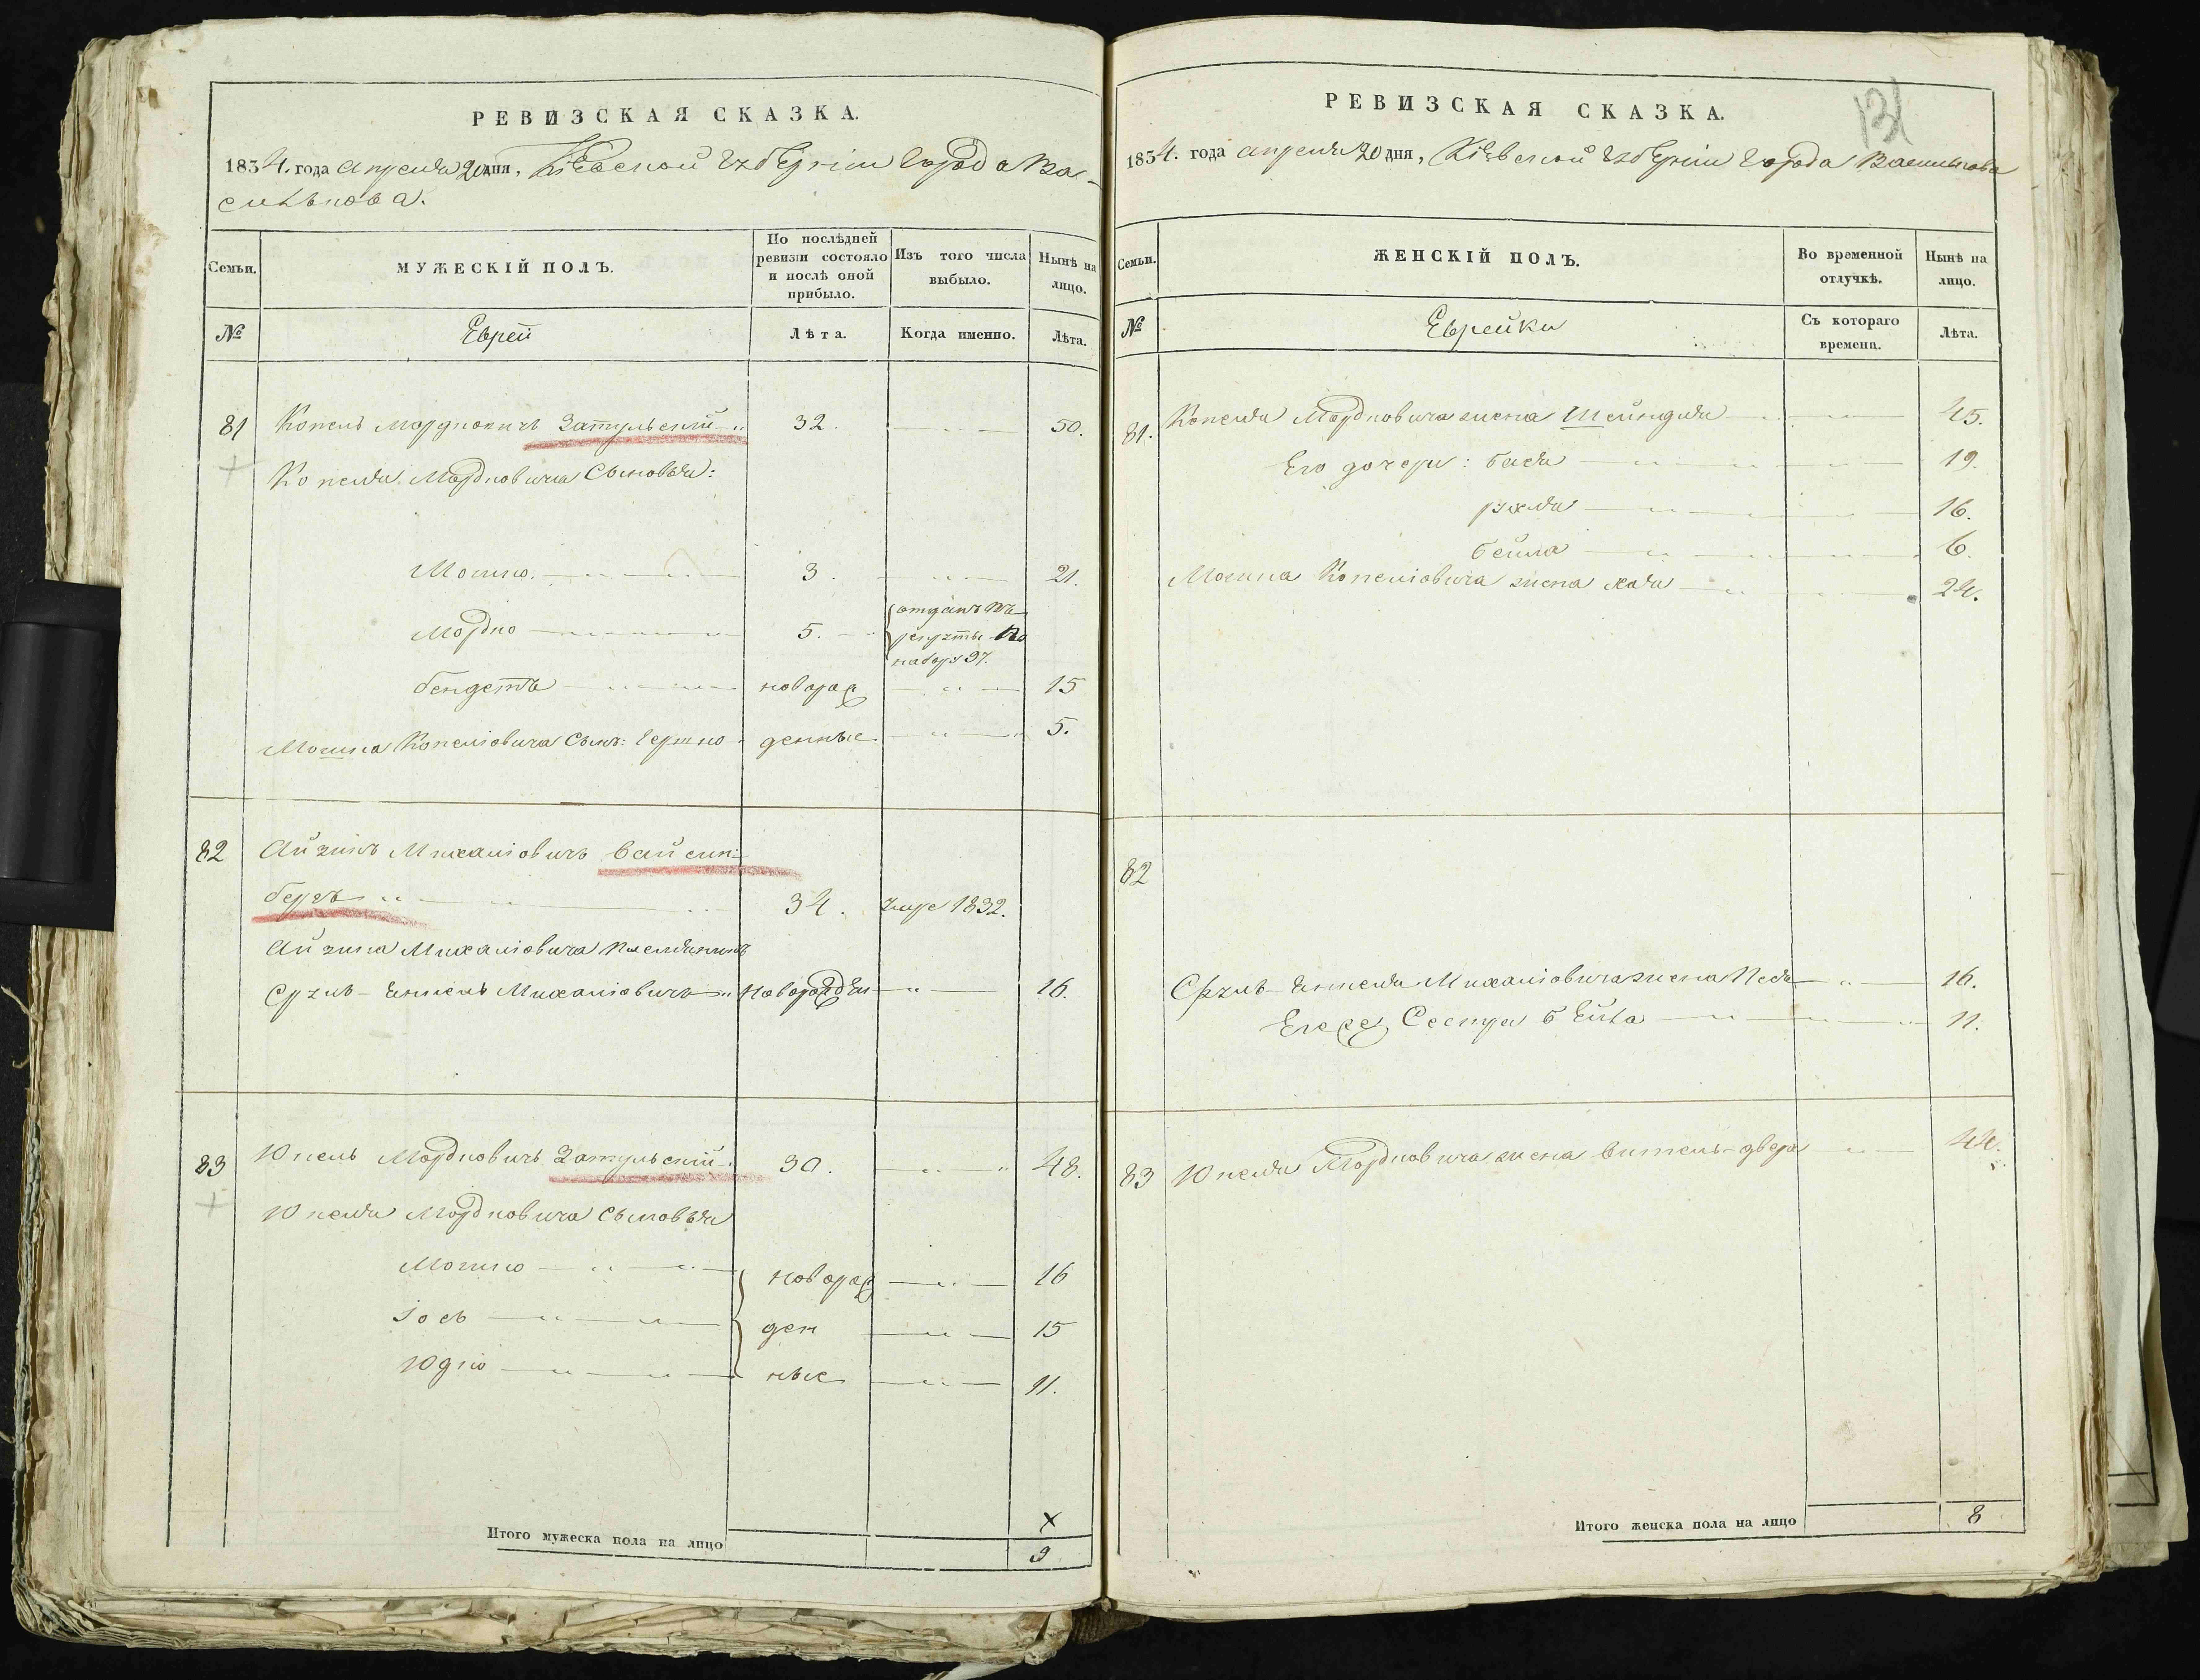 РЕВИЗСКАЯ СКАЗКА.
1834. года апреля 20 дня, Кіевской губерніи города Ва-
силькова.
Семьи. МУЖЕСКІЙ ПОЛЪ. По послѣдней ревизіи состояло и послѣ оной прибыло. Изъ того числа выбыло. Нынѣ на лицо.
№ Еврей Лѣта. Когда именно. Лѣта.
81 Копель Мордковичъ Затульскій 32. 50.
Копеля Мордковича Сыновья:
Мошко. 3. 21.
Мордко 5. отданъ въ рекруты по набору 97.
Бендетъ новорож 15
Мошка Копелювича Сынъ: Гершко денные 5.
82 Айзикъ Михалювичъ Вайсин-
бергъ 34. умре 1832.
Айзика Михалювича племянникъ
Сруль-Енкель Михалювичъ Новорожден 16.
83 Юкель Мордковичъ Затульскій 30. 48.
Юкеля Мордковича Сыновья
Мошко новорож 16
Іось ден 15
Юдко ные 11.
Итого мужеска пола на лицо 9
РЕВИЗСКАЯ СКАЗКА.
131
1834. года апреля 20 дня, Кіевской губерніи города Василькова
Семьи. ЖЕНСКІЙ ПОЛЪ. Во временной отлучкѣ. Нынѣ на лицо.
№ Еврейки Съ котораго времени. Лѣта.
81. Копеля Мордковича жена Шейндля 45.
Его дочери: Бася 19.
рухля 16.
Бейла 6.
Мошка Копелювича жена хая 24.
82
Сруль-Енкеля Михалювича жена Песя 16.
Сестра Бейла 11.
83 Юкеля Мордковича жена Витель-двера 44.
Итого женска пола на лицо 8